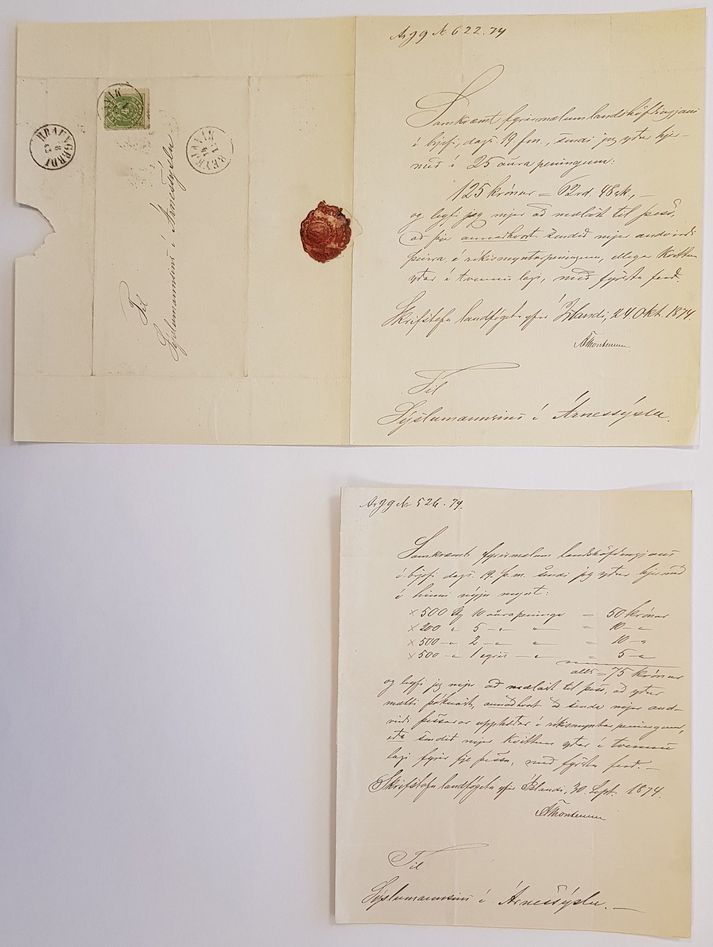 Arгg № 622. 74
Samkvæmt fyrirmælum landshöfðingjans
í brjefi dags. 19. f.m. sendi jeg yður hjer-
með í 25 aura peningum:
125 krónur = 62 rd. 48 sk, —
og leyfi jeg mjer að mælast til þess,
að þér annaðhvort sendið mjer andvirði
þeirra í ríkismyntarpeningum, ellegar kvittun
yðar í tvennu lagi, með fyrstu ferð.
Skrifstofu landfógeta yfir Íslandi, 24 Okt. 1874.
ÁThorsteinson
Til
Sýslumannsins í Árnessýslu.
HRAUNGERDI
REYKJAVIK
Til
Sýslumannsins í Árnessýslu
№ 526. 74.
Samkvæmt fyrirmælum landshöfðingjans
í brjefi dags. 19. þ.m. sendi jeg yður hjermeð
í hinni nýju mynt:
× 500 10 aurapeninga = 50 krónur
× 200 - 5 - = 10 -
× 500 - 2 - = 10 -
× 500 - 1 eyris - = 5 -
alls = 75 krónur
og leyfi jeg mjer að mælast til þess, að yður
mætti þóknast, annaðhvort að senda mjer and-
virði þessarar upphæðar í ríkismyntarpeningum,
eða sendið mjer kvittun yðar í tvennu
lagi fyrir fje þessu, með fyrstu ferð. —
Skrifstofu landfógeta yfir Íslandi, 30. Sept. 1874.
ÁThorsteinson
Til
Sýslumannsins í Árnessýslu. —